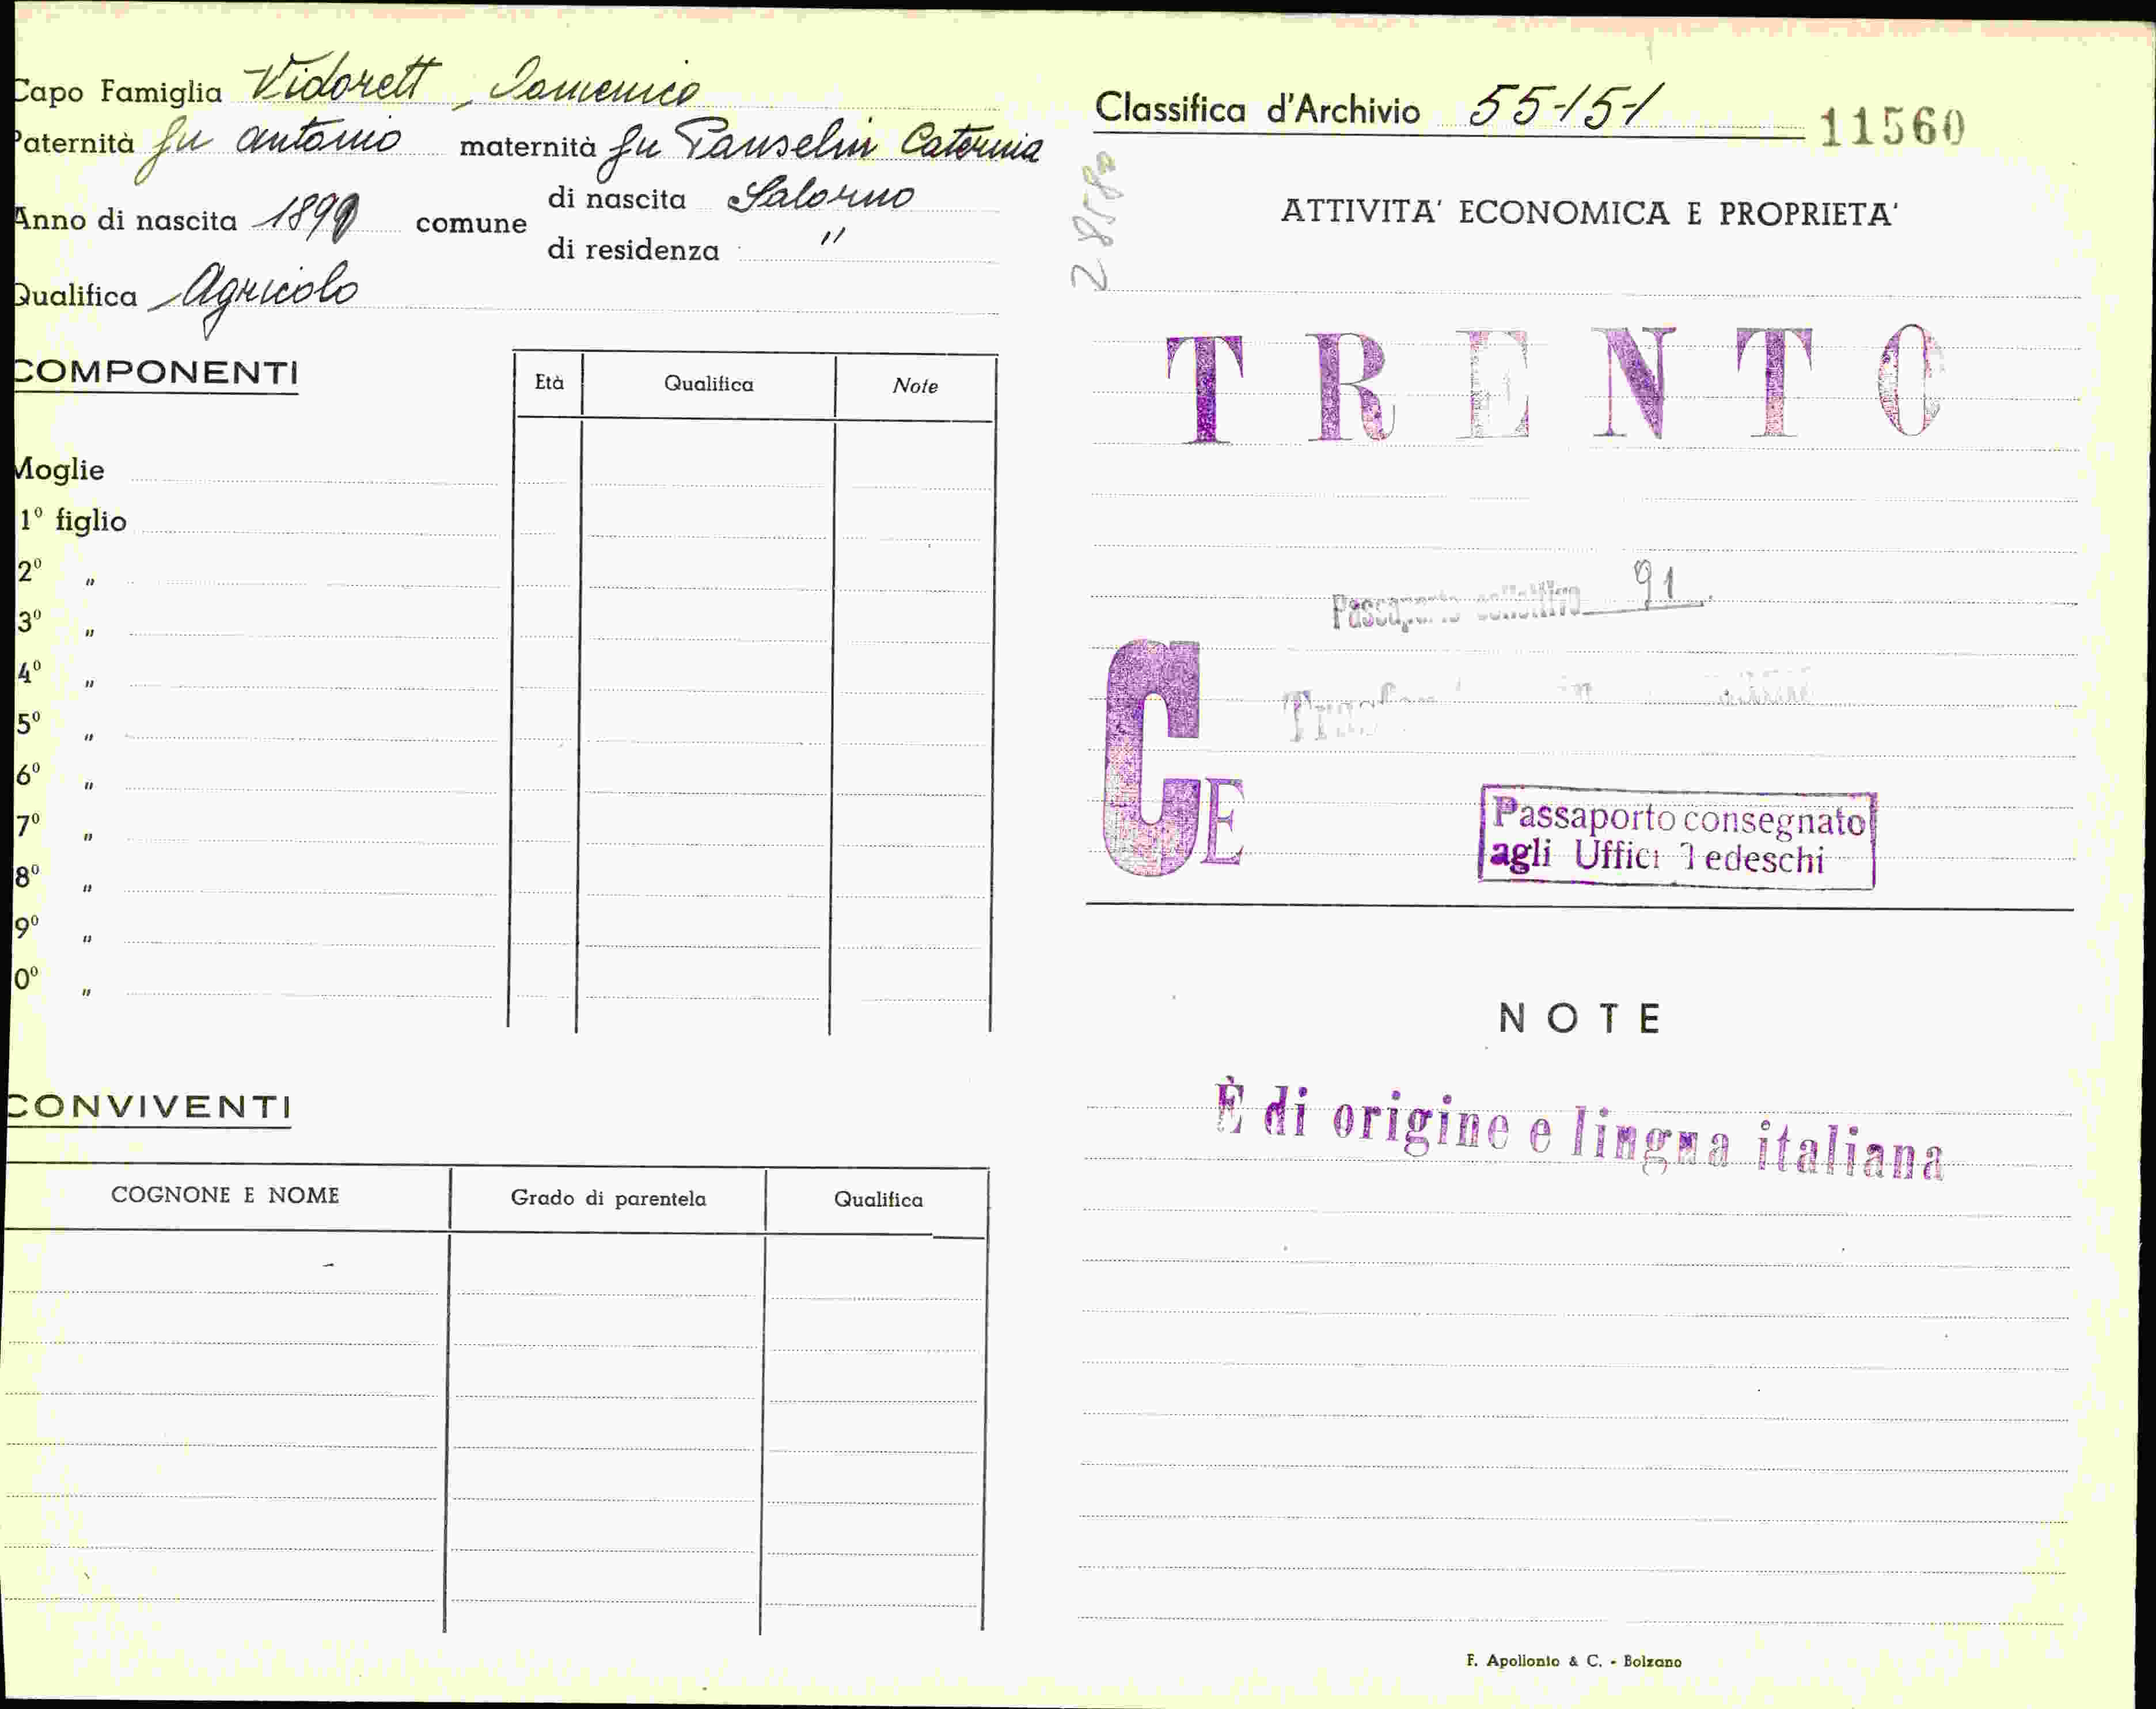 Capo Famiglia Vidorett Domenico
Paternità fu Antonio maternità fu Panselin Caterina
Anno di nascita comune di nascita Salorno
di residenza "
Qualifica Agricolo
COMPONENTI
Età Qualifica Note
Moglie
1º figlio
2º "
3º "
4º "
5º "
6º "
7º "
8º "
9º "
0º "
CONVIVENTI
COGNONE E NOME Grado di parentela Qualifica
Classifica d'Archivio 55-15-1 11560
ATTIVITA' ECONOMICA E PROPRIETA'
TRENTO
Passaporto collettivo 91
CE
Passaporto consegnato
agli Uffici Tedeschi
NOTE
È di origine e lingua italiana
F. Apollonio & C. - Bolzano